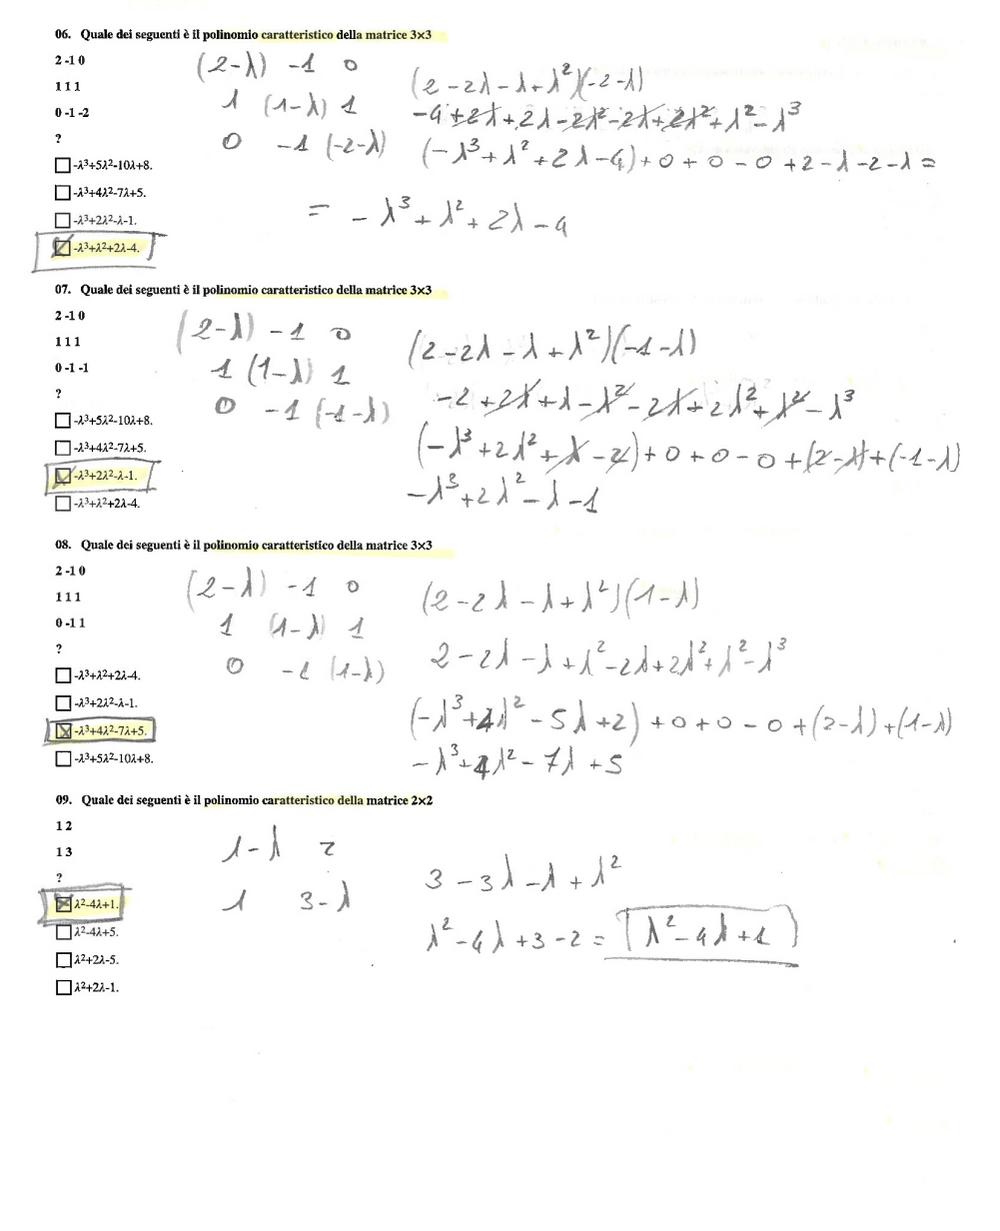 06. Quale dei seguenti è il polinomio caratteristico della matrice 3×3
2 -1 0
1 1 1
0 -1 -2
?
-λ³+5λ²-10λ+8.
-λ³+4λ²-7λ+5.
-λ³+2λ²-λ-1.
-λ³+λ²+2λ-4.
(2-λ) -1 0
1 (1-λ) 1
0 -1 (-2-λ)
(2-2λ-λ+λ²)(-2-λ)
-4+2λ+2λ-2λ²-2λ+2λ²+λ²-λ³
(-λ³+λ²+2λ-4)+0+0-0+2-λ-2-λ=
= -λ³+λ²+2λ-4
07. Quale dei seguenti è il polinomio caratteristico della matrice 3×3
2 -1 0
1 1 1
0 -1 -1
?
-λ³+5λ²-10λ+8.
-λ³+4λ²-7λ+5.
-λ³+2λ²-λ-1.
-λ³+λ²+2λ-4.
(2-λ) -1 0
1 (1-λ) 1
0 -1 (-1-λ)
(2-2λ-λ+λ²)(-1-λ)
-2+2λ+λ-λ²-2λ+2λ²+λ²-λ³
(-λ³+2λ²+λ-2)+0+0-0+(2-λ)+(-1-λ)
-λ³+2λ²-λ-1
08. Quale dei seguenti è il polinomio caratteristico della matrice 3×3
2 -1 0
1 1 1
0 -1 1
?
-λ³+λ²+2λ-4.
-λ³+2λ²-λ-1.
-λ³+4λ²-7λ+5.
-λ³+5λ²-10λ+8.
(2-λ) -1 0
1 (1-λ) 1
0 -1 (1-λ)
(2-2λ-λ+λ²)(1-λ)
2-2λ-λ+λ²-2λ+2λ²+λ²-λ³
(-λ³+4λ²-5λ+2)+0+0-0+(2-λ)+(1-λ)
-λ³+4λ²-7λ+5
09. Quale dei seguenti è il polinomio caratteristico della matrice 2×2
1 2
1 3
?
λ²-4λ+1.
λ²-4λ+5.
λ²+2λ-5.
λ²+2λ-1.
1-λ 2
1 3-λ
3-3λ-λ+λ²
λ²-4λ+3-2= λ²-4λ+1